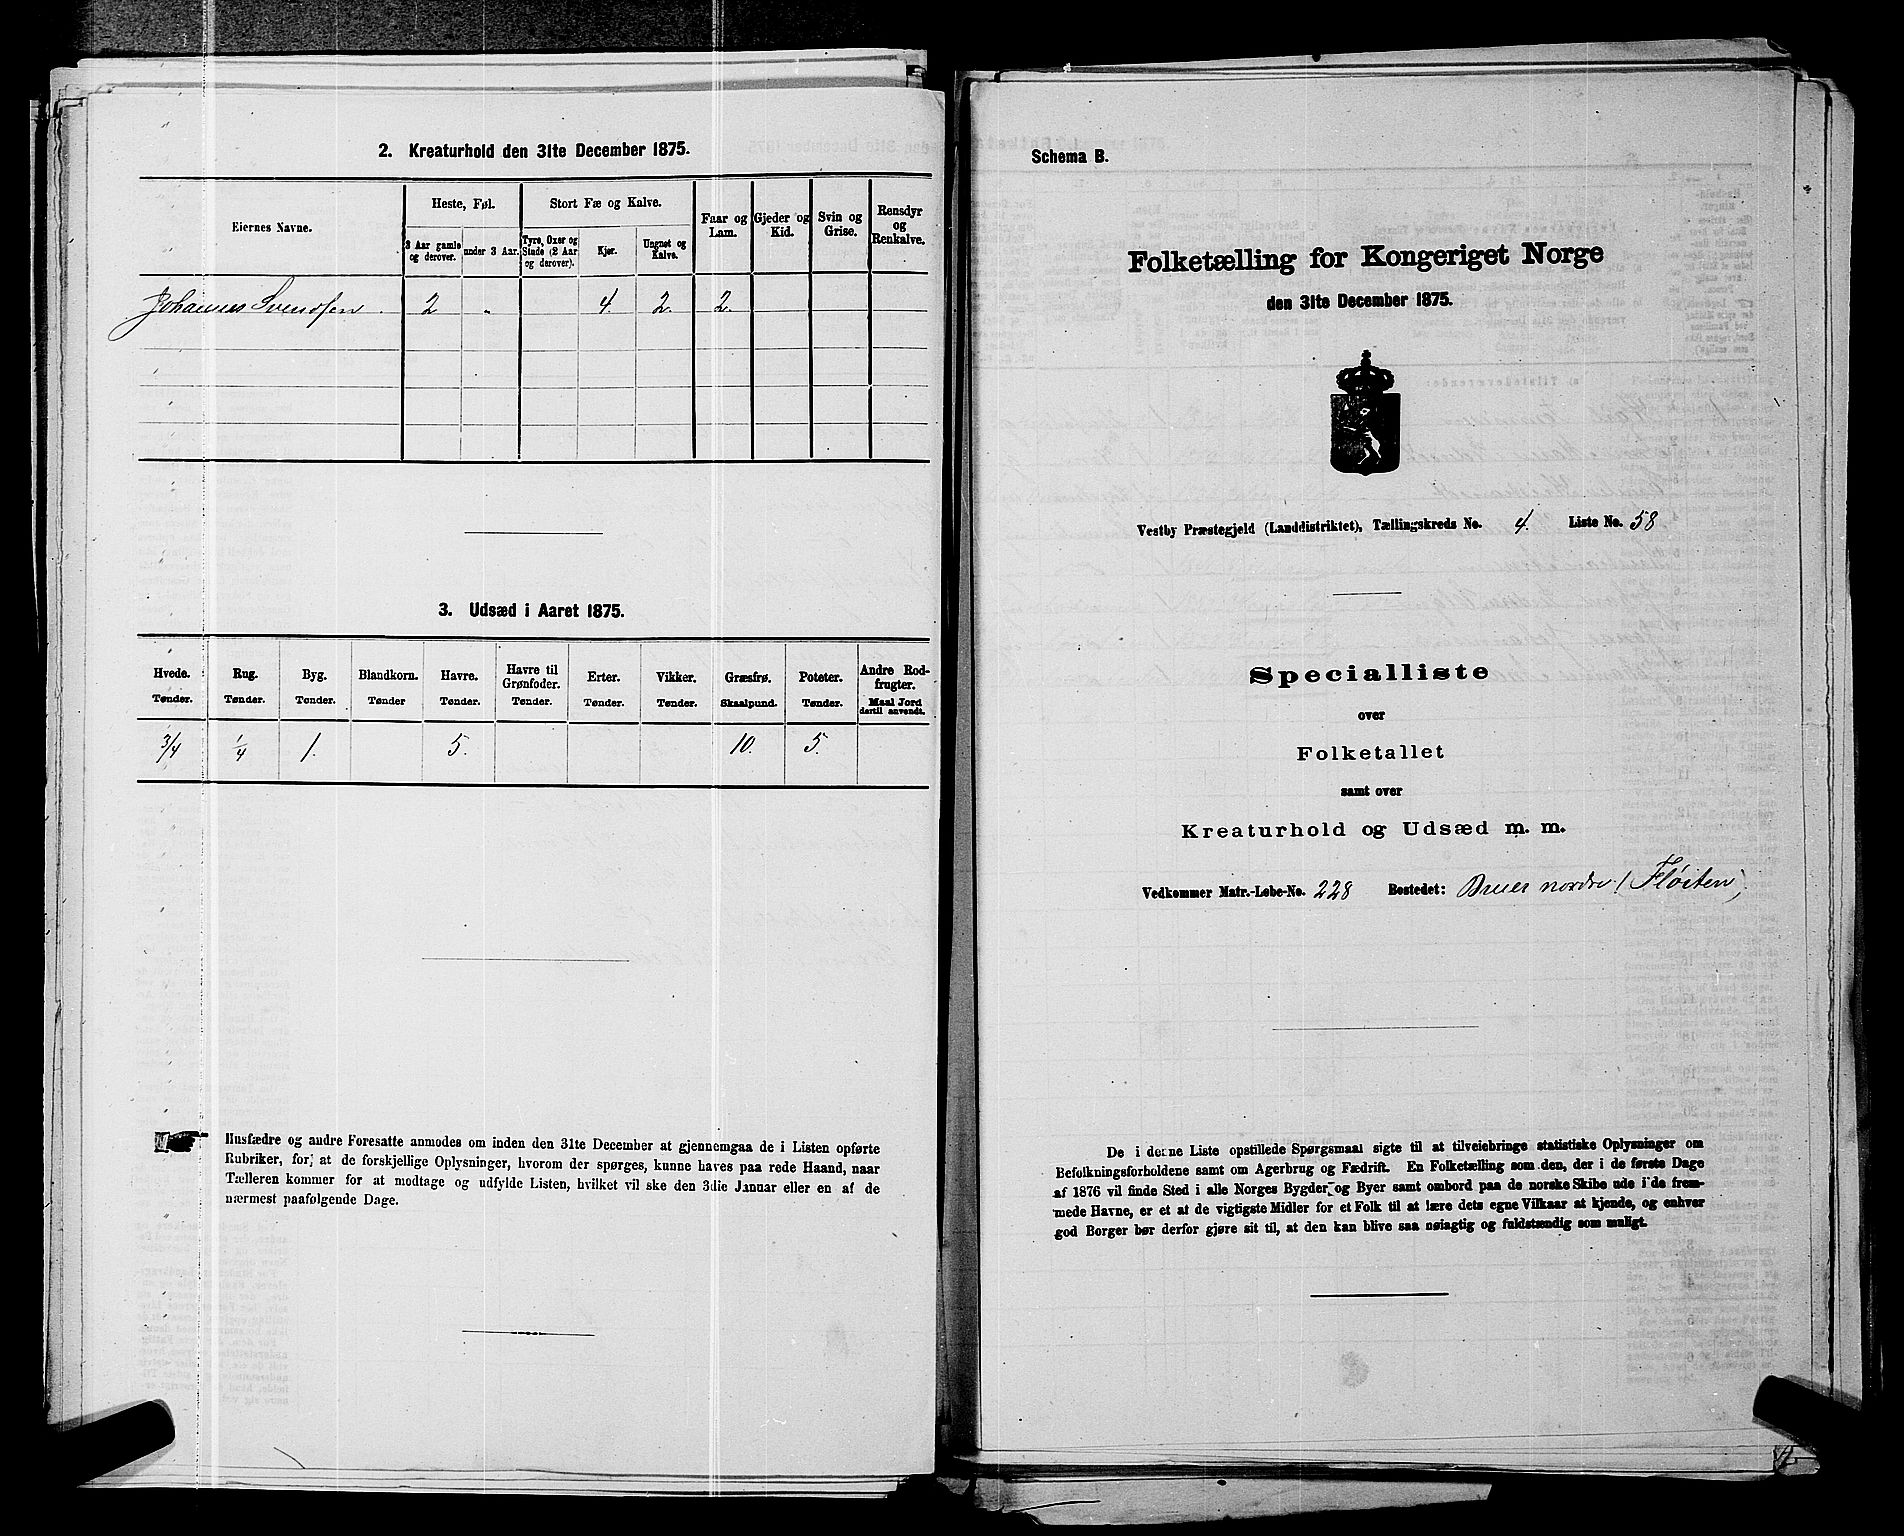 2. Kreaturhold den 31te December 1875.
Eiernes Navne.
Heste, Føl.
Stort Fæ og Kalve.
Faar og Lam.
Gjeder og Kid.
Svin og Grise.
Rensdyr og Renkalve.
3 Aar gamle og derover.
under 3 Aar.
Tyre, Oxer og Stude (2 Aar og derover).
Kjør.
Ungnøt og Kalve.
Johannes Svendsen. 2 " 4. 2. 2.
3. Udsæd i Aaret 1875.
Hvede. Rug. Byg. Blandkorn. Havre. Havre til Grønfoder. Erter. Vikker. Græsfrø. Poteter. Andre Rodfrugter.
Tønder. Tønder. Tønder. Tønder Tønder. Tønder. Tønder. Tønder. Skaalpund. Tønder. Maal Jord dertil anvendt.
3/4 1/4 1. 5. 10. 5.
Husfædre og andre Foresatte anmodes om inden den 31te December at gjennemgaa de i Listen opførte
Rubriker, for at de forskjellige Oplysninger, hvorom der spørges, kunne haves paa rede Haand, naar
Tælleren kommer for at modtage og udfylde Listen, hvilket vil ske den 3die Januar eller en af de
nærmest paafølgende Dage.
Schema B.
Folketælling for Kongeriget Norge
den 31te December 1875.
Vestby Præstegjeld (Landdistriktet), Tællingskreds No. 4. Liste No. 58
Specialliste
over
Folketallet
samt over
Kreaturhold og Udsæd m. m.
Vedkommer Matr.-Løbe-No. 228 Bostedet: nordre (Fløiten)
De i denne Liste opstillede Spørgsmaal sigte til at tilveiebringe statistiske Oplysninger om
Befolkningsforholdene samt om Agerbrug og Fædrift. En Folketælling som den, der i de første Dage
af 1876 vil finde Sted i alle Norges Bygder og Byer samt ombord paa de norske Skibe ude i de frem-
mede Havne, er et at de vigtigste Midler for et Folk til at lære dets egne Vilkaar at kjende, og enhver
god Borger bør derfor gjøre sit til, at den kan blive saa nøiagtig og fuldstændig som muligt.